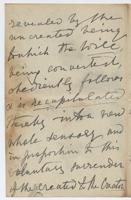 revealed by the
uncreated being
to which the Will,
being converted,
obediently follows
& is recapitulated
thereby into a new
whole sensory and
in proportion to this
voluntary surrender
of the created to the Creator